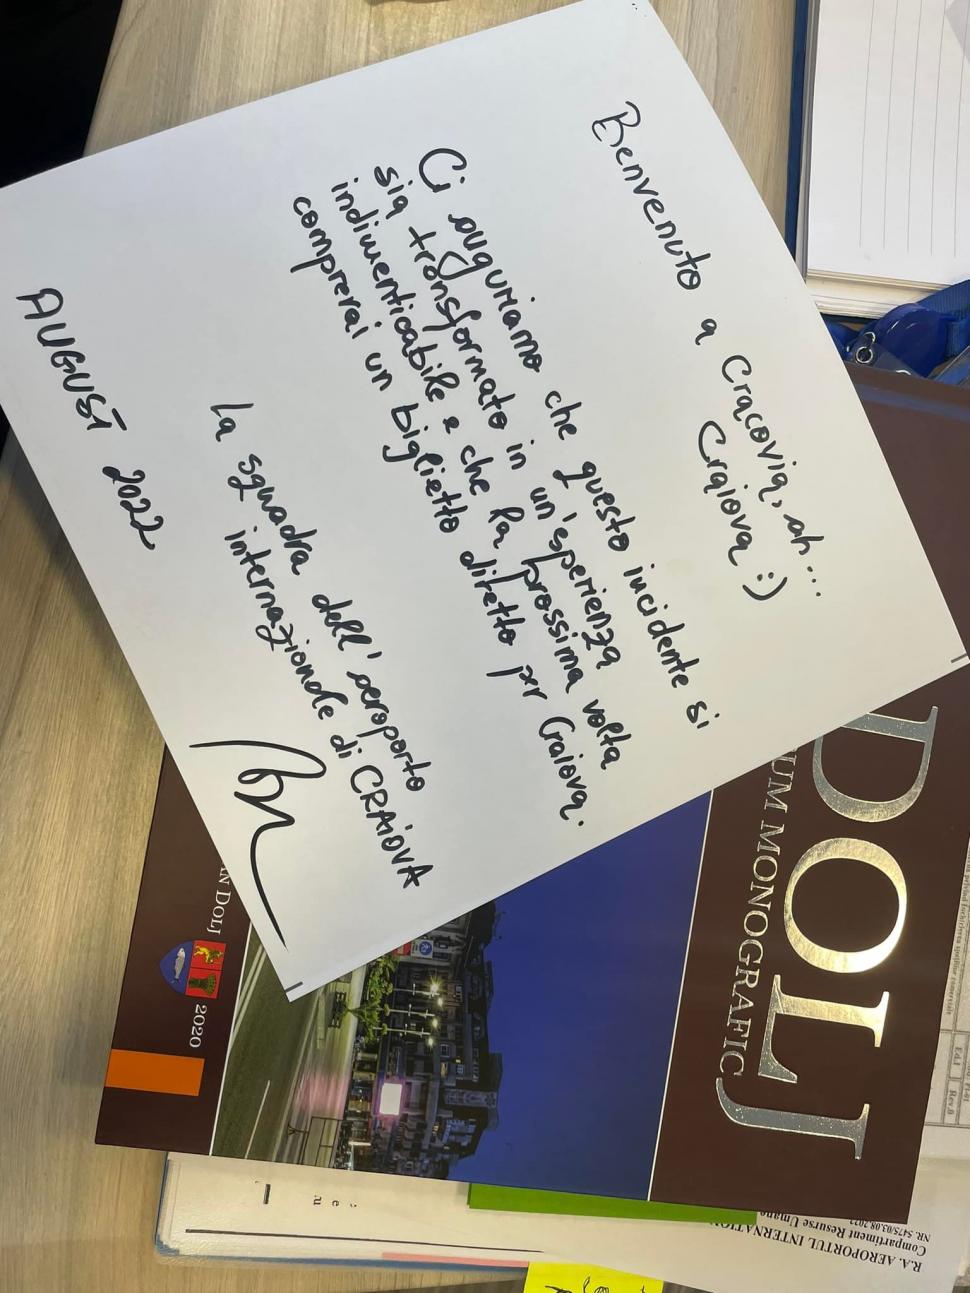 Benvenuto a Cracovia, ah...
Craiova :)
Ci auguriamo che questo incidente si
sia transformato in un'sperienza
indimenticabile e che la prossima volta
comprerai un biglietto diretto per Craiova.
La squadra dell'aeroporto
internazionale di CRAIOVA
AUGUST 2022
DOLJ
UM MONOGRAFIC
N DOLJ
2020
R.A. AEROPORTUL INTERNATION
Compartiment Resurse Umane
NR. 5475/03.08.2022
Ed.1
Rev.0